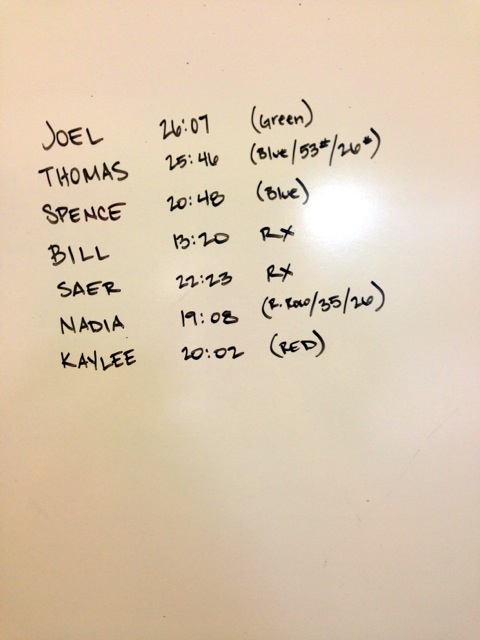 JOEL 26:07 (Green)
THOMAS 25:46 (Blue/53#/26#)
SPENCE 20:48 (Blue)
BILL 13:20 RX
SAER 22:23 RX
NADIA 19:08 (R. Row/35/26)
KAYLEE 20:02 (RED)